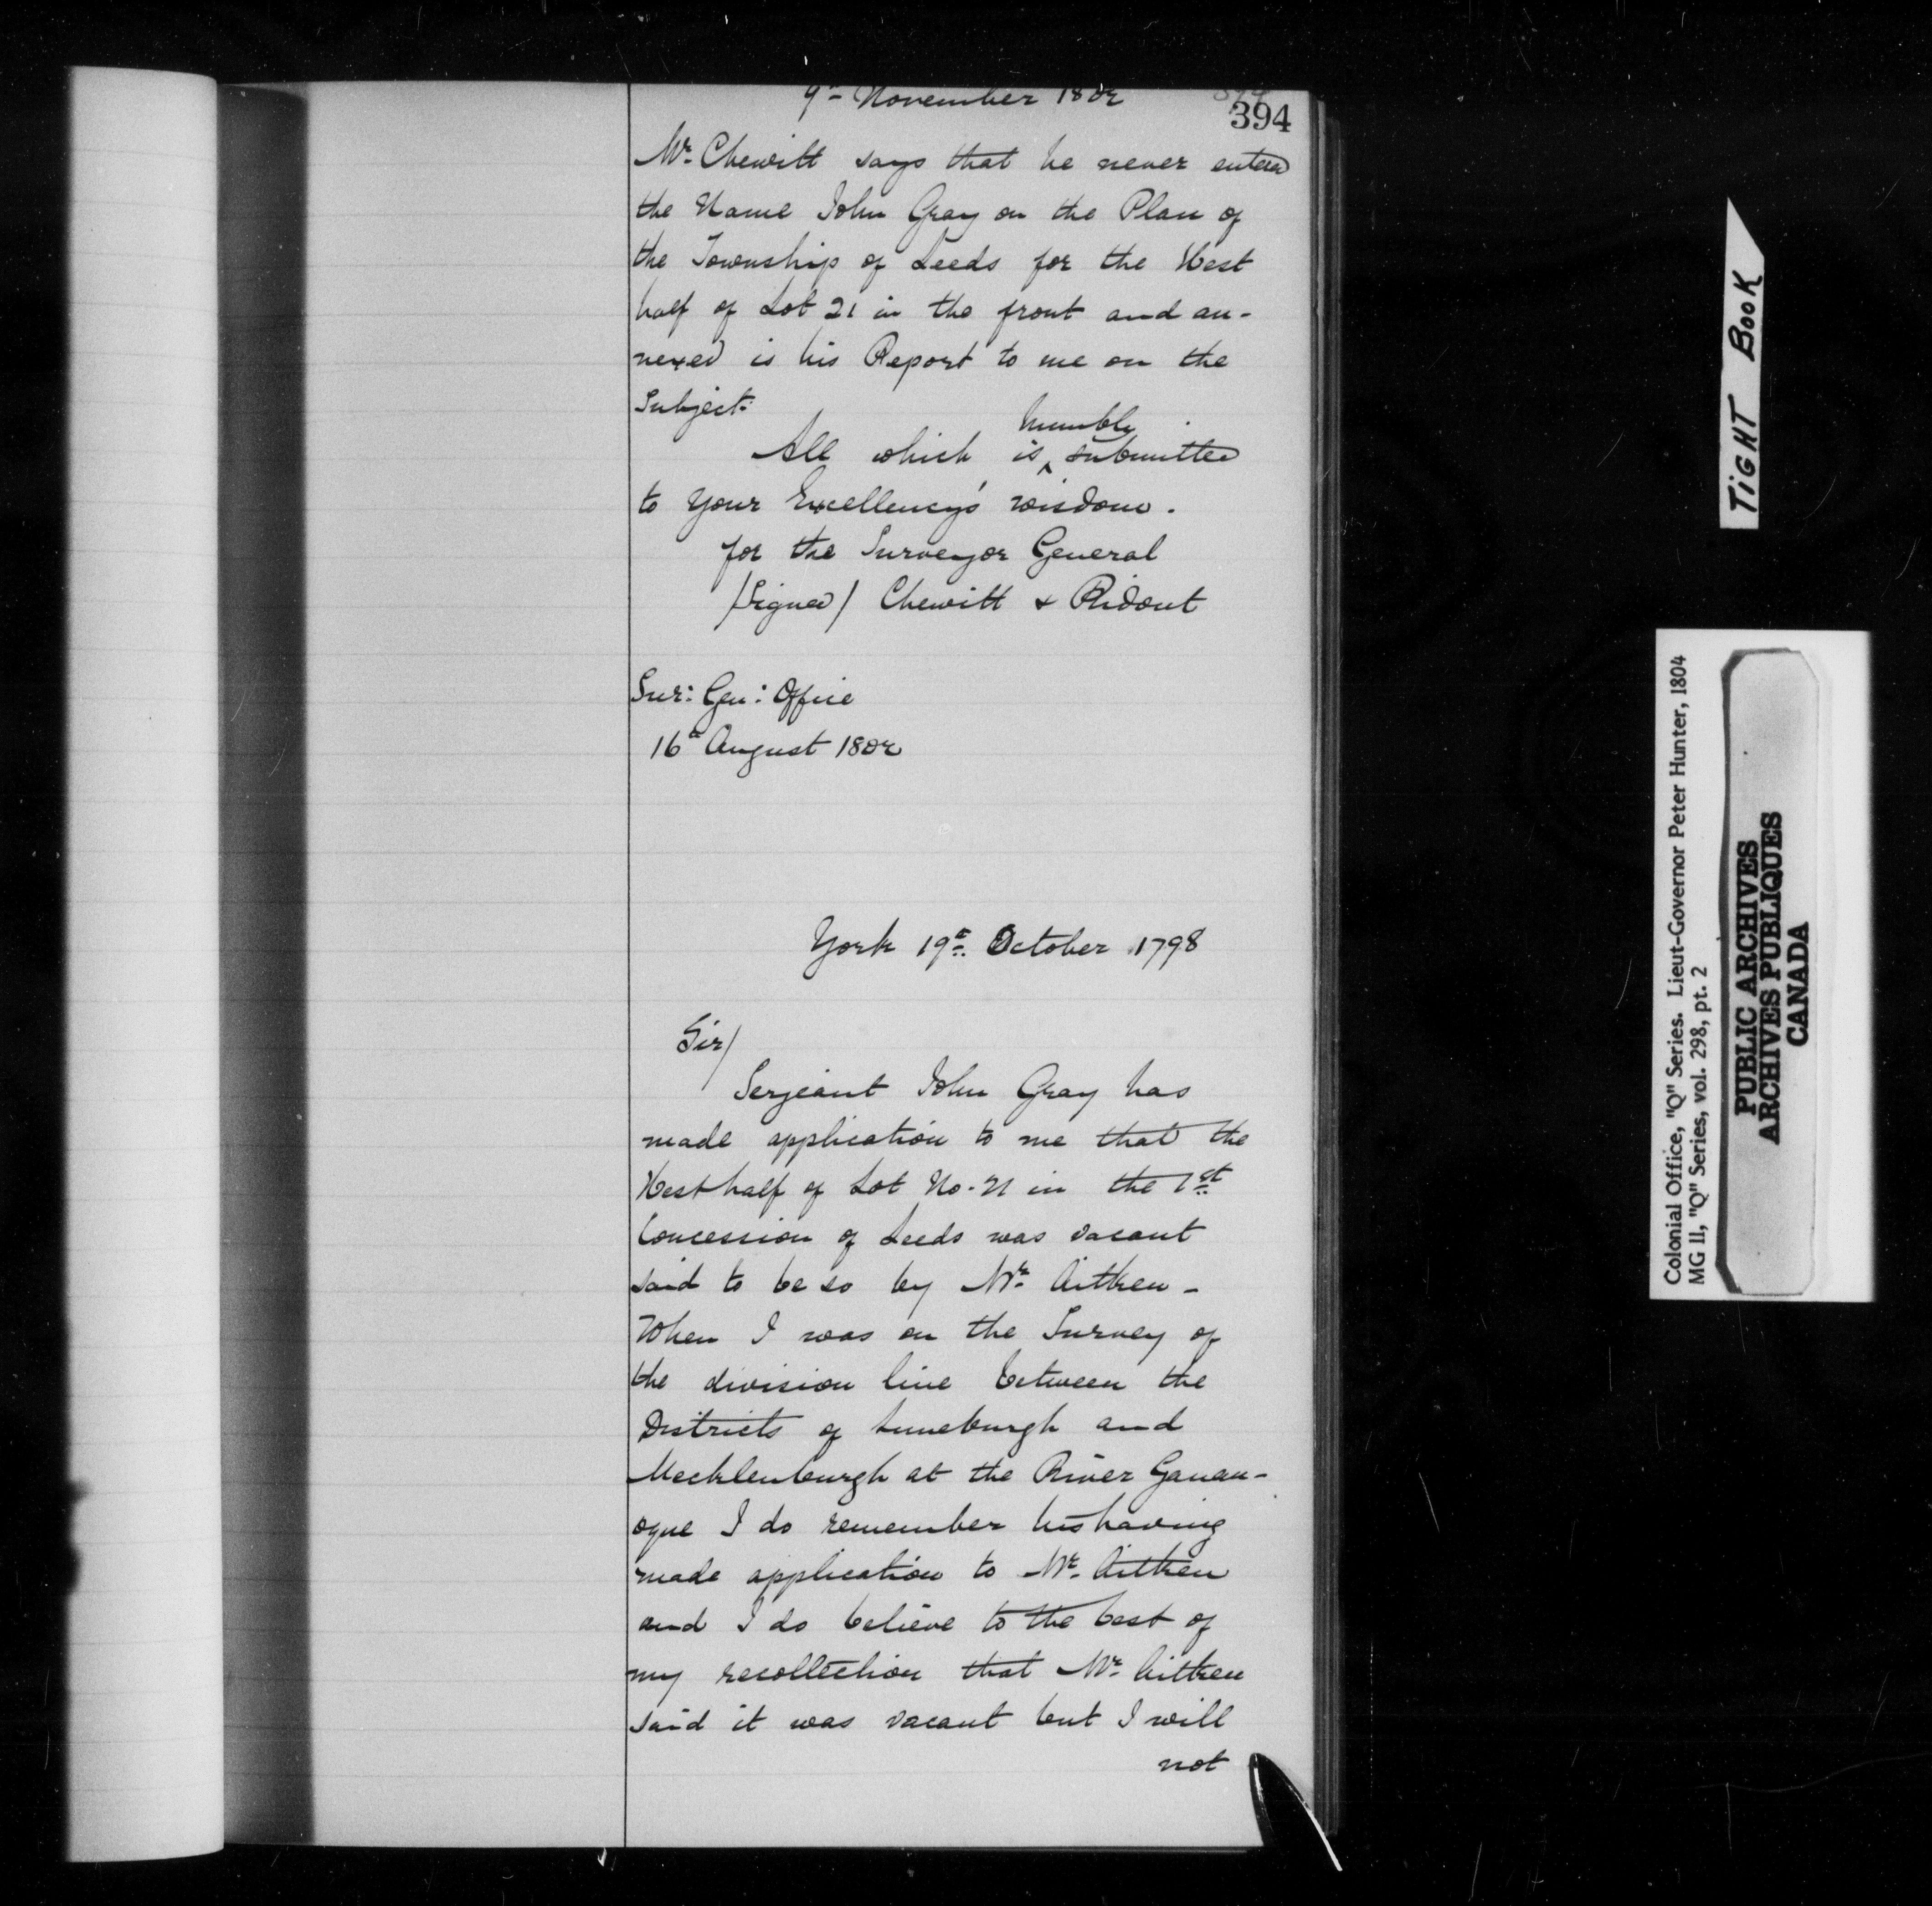 9th November 1802
394
Mr. Chewitt says that he never entered
the Name John Gray on the Plan of
the Township of Leeds for the West
half of Lot 21 in the front and an-
nexed is his Report to me on the
Subject.
All which is humbly submitted
to Your Excellency's wisdom.
for the Surveyor General
/Signed/ Chewitt & Ridout
Sur: Gen: Office
16th August 1802
York 19th October 1798
Sir/
Serjeant John Gray has
made application to me that the
West half of Lot No. 21 in the 1st
Concession of Leeds was vacant
said to be so by Mr. Aitken -
When I was on the Survey of
the division line between the
Districts of Luneburgh and
Mecklenburgh at the River Ganan-
oque I do remember his having
made application to Mr. Aitken
and I do believe to the best of
my recollection that Mr. Aitken
said it was vacant but I will
not
TIGHT BOOK
Colonial Office, "Q" Series. Lieut-Governor Peter Hunter, 1804
MG 11, "Q" Series, vol. 298, pt. 2
PUBLIC ARCHIVES
ARCHIVES PUBLIQUES
CANADA